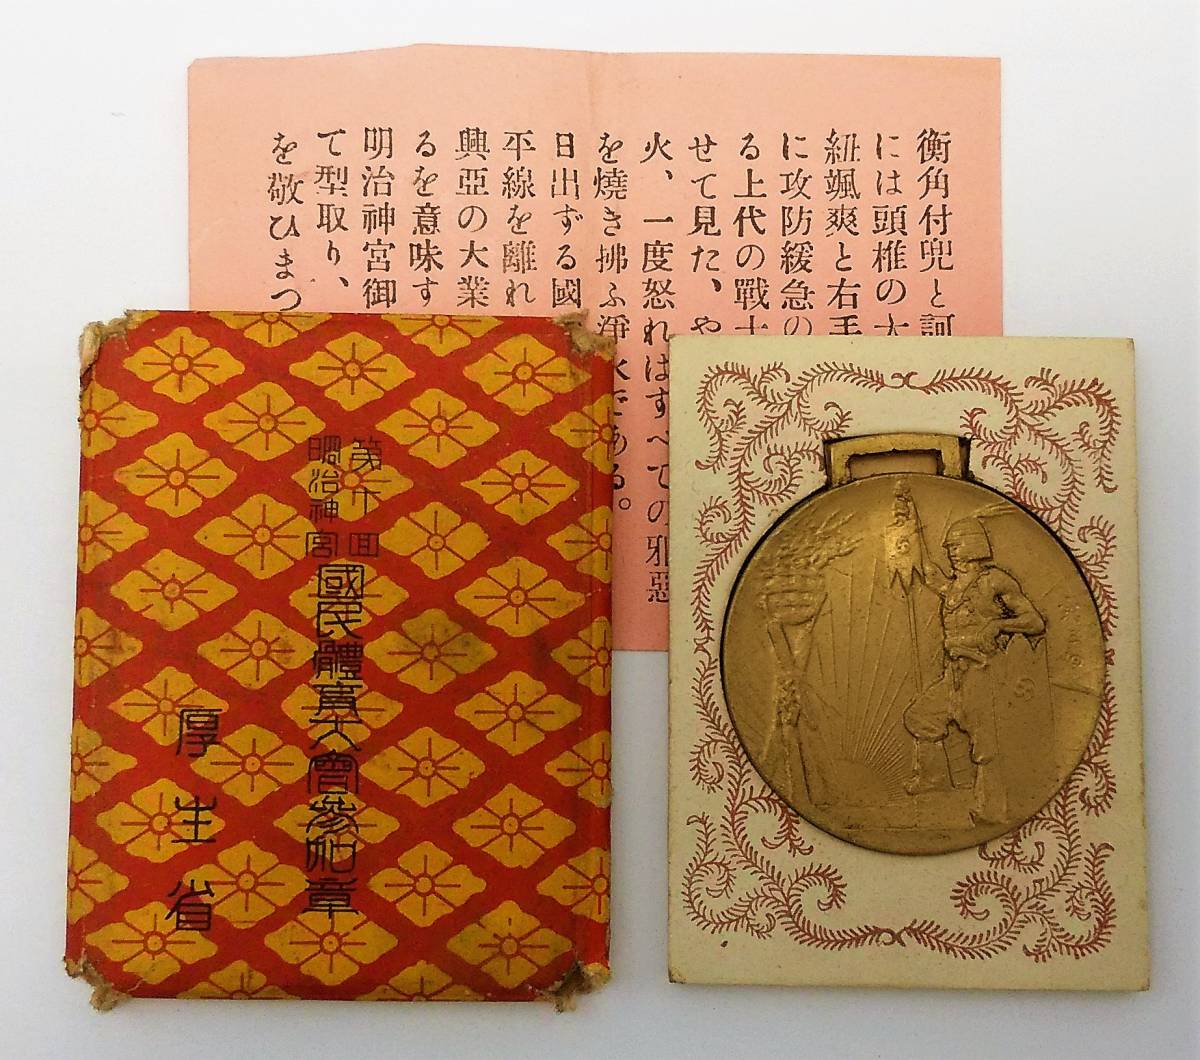 衡角付兜と訶
には頭椎の大
紐颯爽と右手
に攻防緩急の
る上代の戰士
せて見た、や
火、一度怒ればすべての邪惡
を燒き拂ふ淨火である。
日出ずる國
平線を離れ
興亞の大業
るを意味す
明治神宮御
て型取り、
を敬ひまつ
第十回
明治神宮
國民體育大會參加章
厚生省